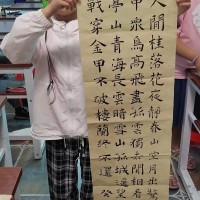 人閒桂落花夜靜春山空月出驚
中眾鳥高飛盡孤雲獨去閒相看
亭山青海長雲暗雪山孤城遙望
戰穿金甲不破樓蘭終不還